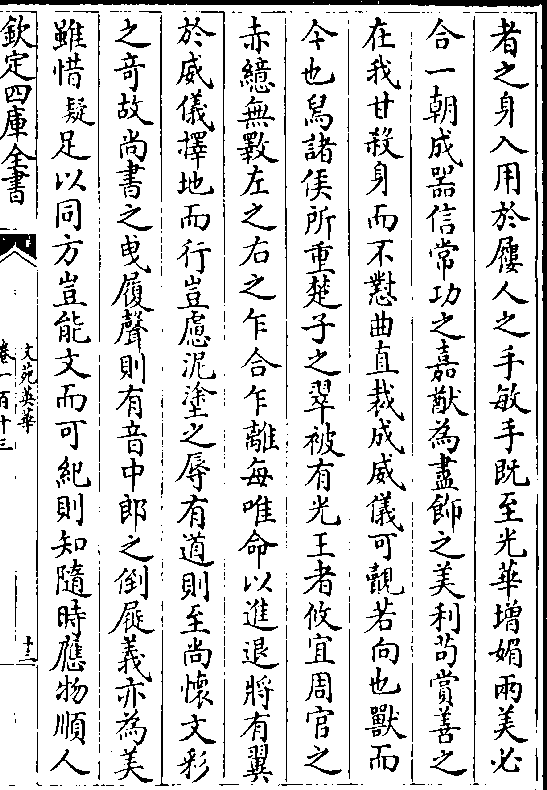 者之身入用於屨人之手敏手既至光華增媚兩美必
合一朝成器信常功之嘉猷為盡飾之美利苟賞善之
在我甘殺身而不懟曲直裁成威儀可覿若向也獸而
今也舄諸侯所重楚子之翠被有光王者攸宜周官之
赤繶無斁左之右之乍合乍離每唯命以進退將有翼
於威儀擇地而行豈慮泥塗之辱有道則至尚懷文彩
之奇故尚書之曳履聲則有音中郎之倒屣義亦為美
雖惜疑足以同方豈能文而可紀則知隨時應物順人
欽定四庫全書
文苑英華
卷一百十三
十二